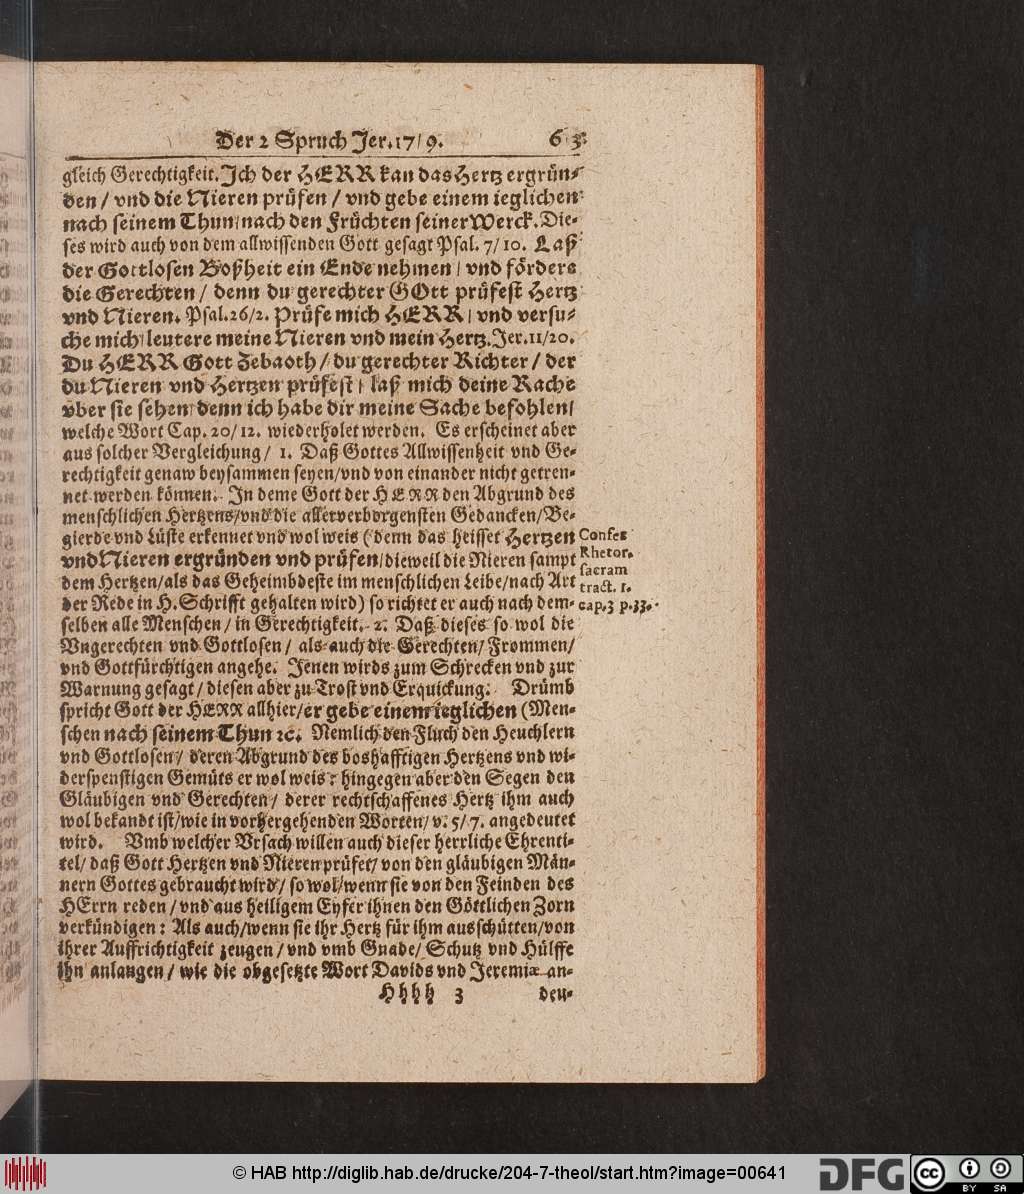 Der 2 Spruch Jer.17/9. 613
gleich Gerechtigkeit. Ich der HERR kan das Hertz ergrün⸗
den / vnd die Nieren prüfen / vnd gebe einem ieglichen
nach seinem Thun/nach den Früchten seiner Werck. Die⸗
ses wird auch von dem allwissenden Gott gesagt Psal. 7/10. Laß
der Gottlosen Boßheit ein Ende nehmen / vnd fördere
die Gerechten / denn du gerechter GOtt prüfest Hertz
vnd Nieren. Psal.26/2. Prüfe mich HERR / vnd versu⸗
che mich/leutere meine Nieren vnd mein Hertz. Jer.11/20.
Du HERR Gott Zebaoth / du gerechter Richter / der
du Nieren vnd Hertzen prüfest / laß mich deine Rache
vber sie sehen/denn ich habe dir meine Sache befohlen/
welche Wort Cap. 20/12. wiederholet werden. Es erscheinet aber
aus solcher Vergleichung / 1. Daß Gottes Allwissenheit vnd Ge⸗
rechtigkeit genaw beysammen seyen/vnd von einander nicht getren⸗
net werden können. In deme Gott der HERR den Abgrund des
menschlichen Hertzens/vnd die allerverborgensten Gedancken/Be⸗
gierde vnd Lüste erkennet vnd wol weis (denn das heisset Hertzen
vnd Nieren ergründen vnd prüfen/dieweil die Nieren sampt
dem Hertzen/als das Geheimbdeste im menschlichen Leibe/nach Art
der Rede in H. Schrifft gehalten wird) so richtet er auch nach dem⸗
selben alle Menschen / in Gerechtigkeit. 2. Daß dieses so wol die
Vngerechten vnd Gottlosen / als auch die Gerechten/ Frommen/
vnd Gottfürchtigen angehe. Jenen wirds zum Schrecken vnd zur
Warnung gesagt / diesen aber zu Trost vnd Erquickung. Drümb
spricht Gott der HERR allhier/er gebe einem ieglichen (Men⸗
schen nach seinem Thun ꝛc. Nemlich den Fluch den Heuchlern
vnd Gottlosen / deren Abgrund des boshafftigen Hertzens vnd wi⸗
derspenstigen Gemüts er wol weis: hingegen aber den Segen den
Gläubigen vnd Gerechten / derer rechtschaffenes Hertz ihm auch
wol bekandt ist/wie in vorhergehenden Worten/ v. 5/7. angedeutet
wird. Vmb welcher Vrsach willen auch dieser herrliche Ehrenti⸗
tel/ daß Gott Hertzen vnd Nieren prüfet/ von den gläubigen Män⸗
nern Gottes gebraucht wird / so wol/wenn sie von den Feinden des
HErrn reden / vnd aus heiligem Eyfer ihnen den Göttlichen Zorn
verkündigen: Als auch/wenn sie ihr Hertz für ihm ausschütten/von
ihrer Auffrichtigkeit zeugen / vnd vmb Gnade/ Schutz vnd Hülffe
ihn anlangen / wie die obgesetzte Wort Davids vnd Jeremiæ an⸗
Hhhh 3 deu⸗
Confer
Rhetor.
sacram
tract. 1.
cap.3 p.33.
© HAB http://diglib.hab.de/drucke/204-7-theol/start.htm?image=00641
DFG
cc BY SA